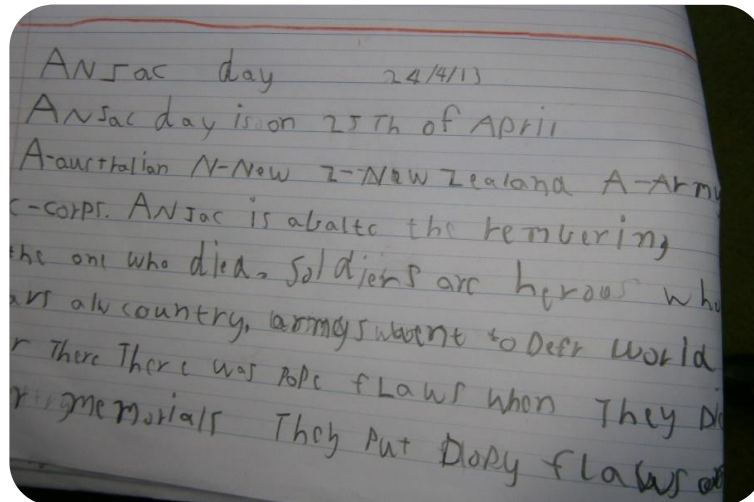 ANSac day 24/4/13
ANSac day is on 25Th of April
A-auctralian N-New Z-New Zealand A-Army
c-corps. ANSac is abaltc the remvering
the one who died. Soldiers are heroos who
ars alu country, armeys wbent to Defr World
r There There was POPC fLawS when They Di
memorials They Put POPy flaws